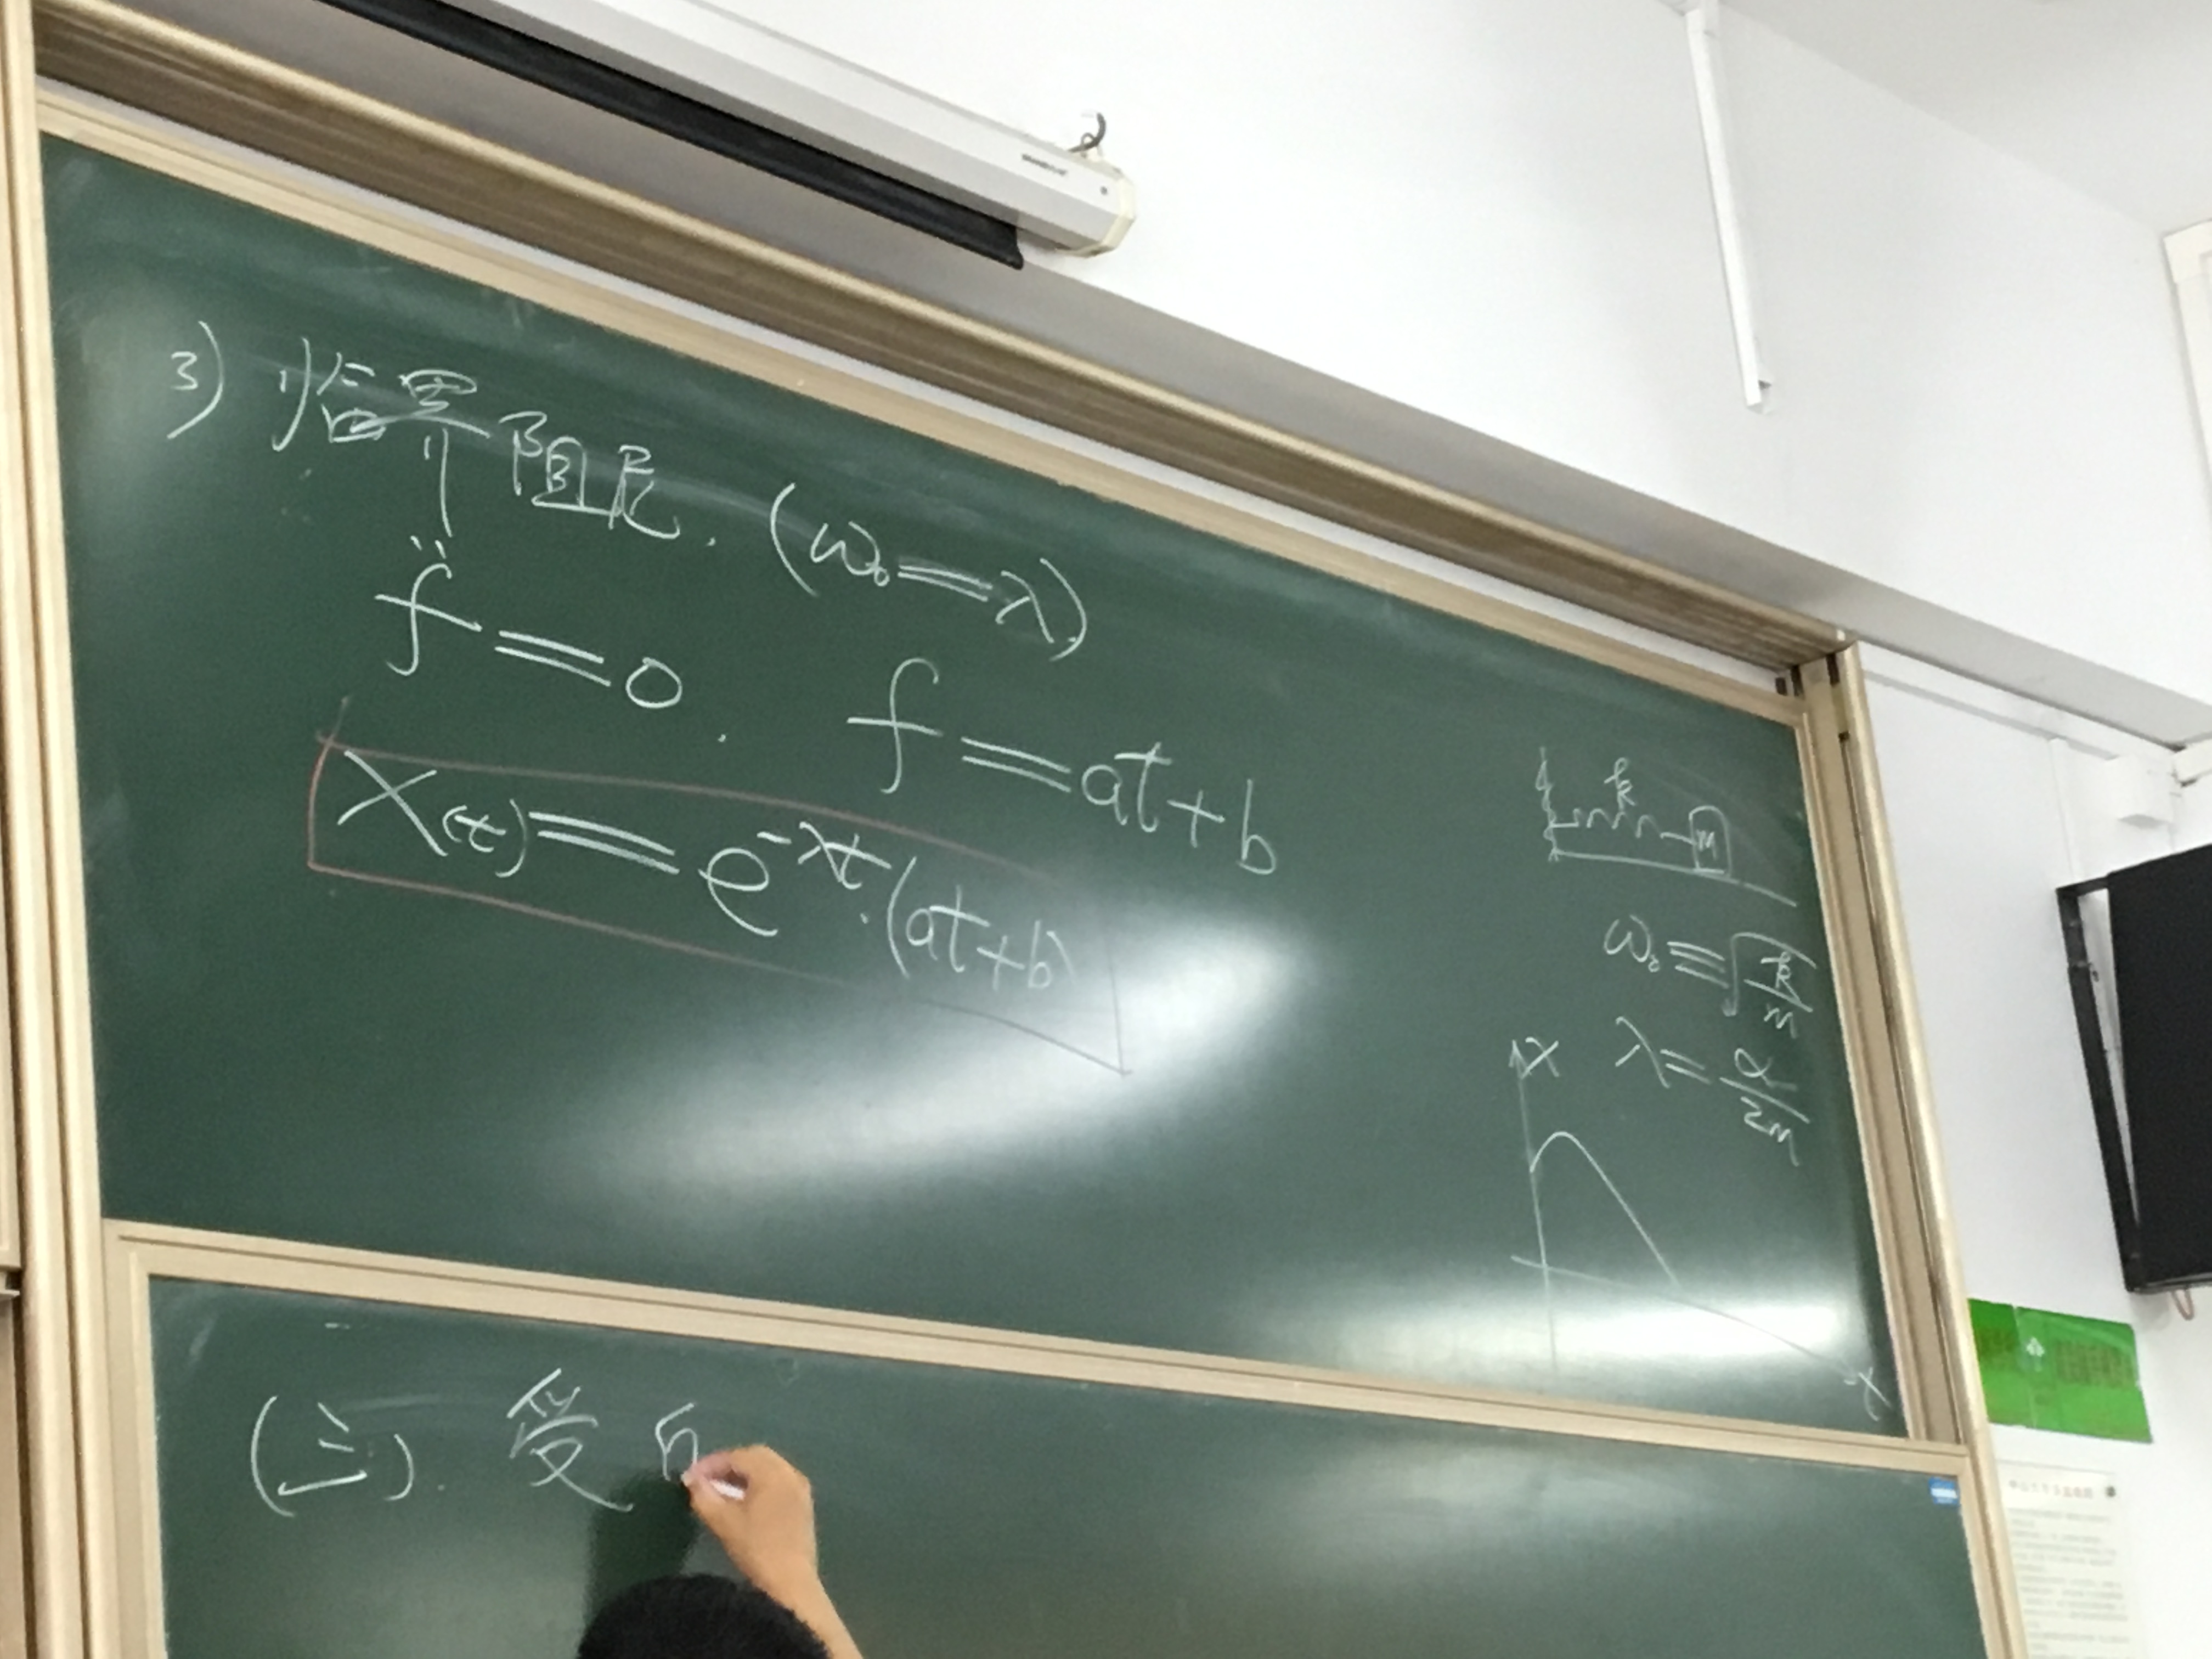 3) 临界阻尼. (ω₀=λ)
f̈=0. f=at+b
X(t)=e^{-λt}·(at+b)
k
m
ω₀=√(k/m)
λ=α/2m
x
t
(三). 受